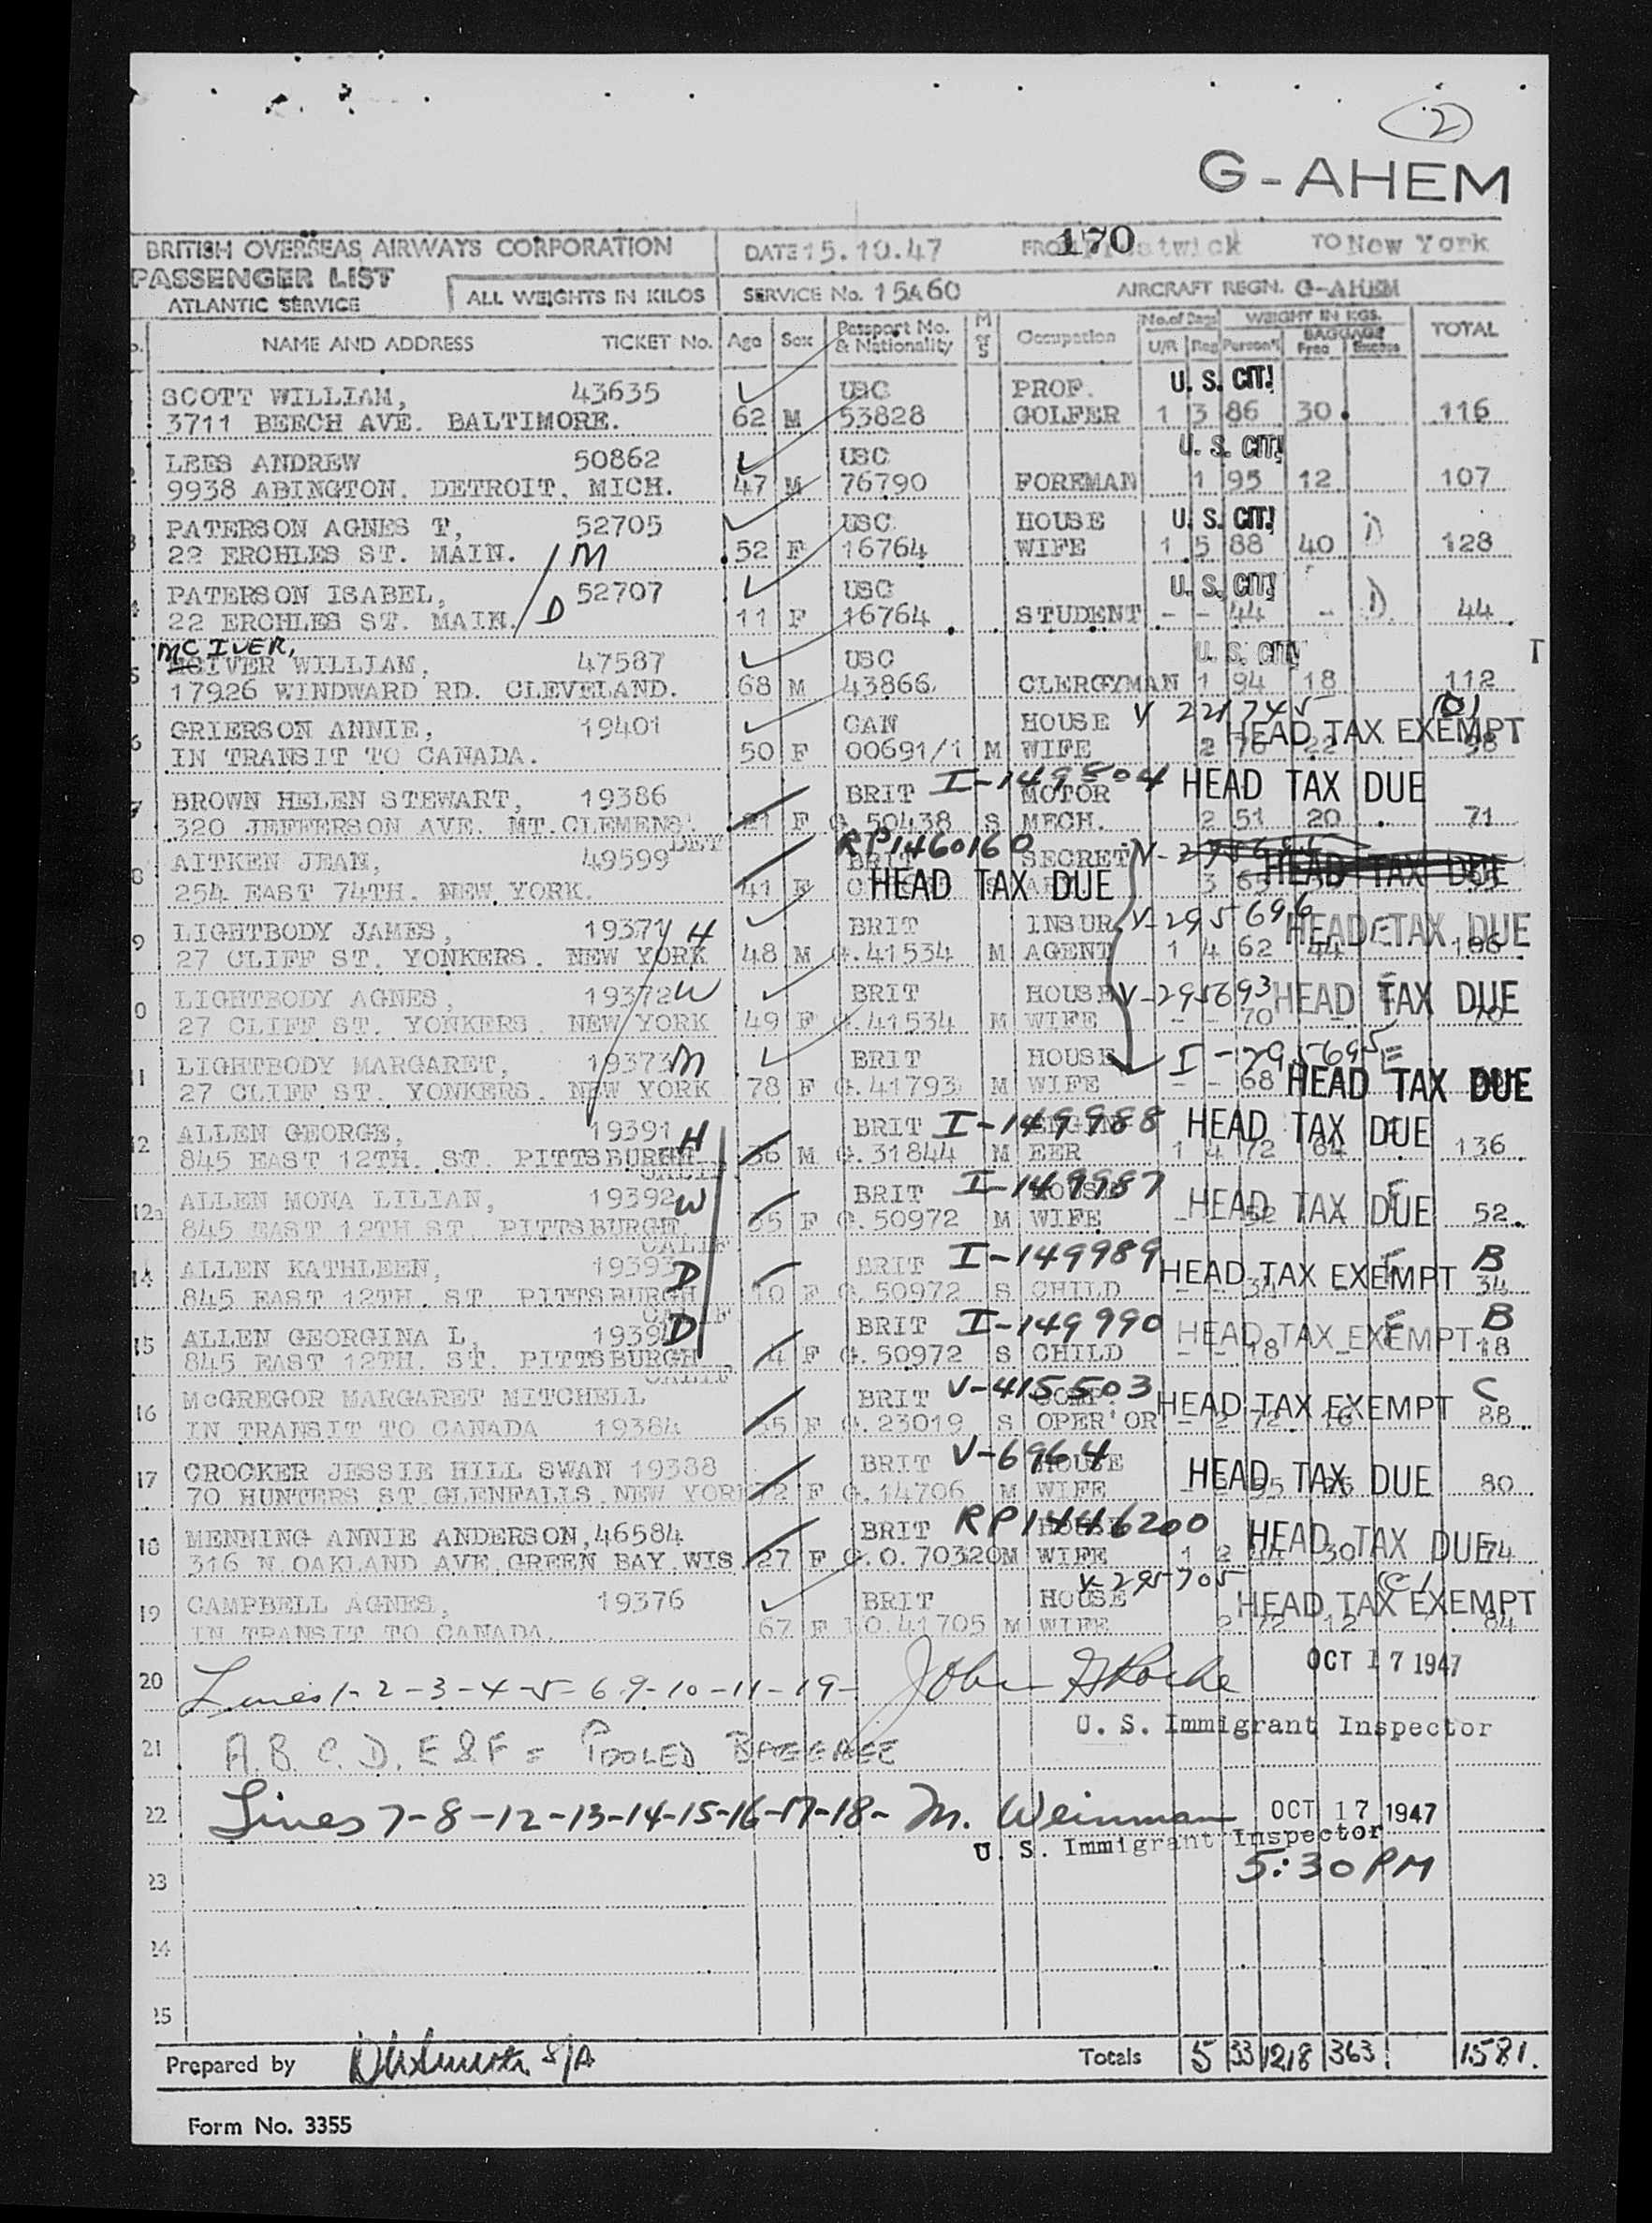 (2)
G-AHEM
BRITISH OVERSEAS AIRWAYS CORPORATION DATE 15.10.47 FROM Prestwick 170 TO New York
PASSENGER LIST
ATLANTIC SERVICE ALL WEIGHTS IN KILOS SERVICE No. 15A60 AIRCRAFT REGN. G-AHEM
NAME AND ADDRESS TICKET No. Age Sex Passport No. & Nationality M or S Occupation No. of Bags U/R Reg WEIGHT IN KGS. Person'l BAGGAGE Free Excess TOTAL
SCOTT WILLIAM, 43635 USC PROF. U. S. CIT.
3711 BEECH AVE. BALTIMORE. 62 M 53828 GOLFER 1 3 86 30 116
LEES ANDREW 50862 USC U. S. CIT.
9938 ABINGTON. DETROIT, MICH. 47 M 76790 FOREMAN 1 95 12 107
PATERSON AGNES T, 52705 USC HOUSE U. S. CIT. D
22 ERCHLES ST. MAIN. M 52 F 16764 WIFE 1 5 88 40 128
PATERSON ISABEL, 52707 USC U. S. CIT.
22 ERCHLES ST. MAIN. D 11 F 16764 STUDENT - - 44 - D. 44
McIVER,
McGIVER WILLIAM, 47587 USC U. S. CIT. T
17926 WINDWARD RD. CLEVELAND. 68 M 43866 CLERGYMAN 1 94 18 112
6 GRIERSON ANNIE, 19401 CAN HOUSE V 2217745 HEAD TAX EXEMPT
IN TRANSIT TO CANADA. 50 F 00691/1 M WIFE 2 76 22 98
BROWN HELEN STEWART, 19386 BRIT I-149504 MOTOR HEAD TAX DUE
320 JEFFERSON AVE. MT.CLEMENS. DET 21 F 50438 S MECH. 2 51 20 71
8 AITKEN JEAN, 49599 RP1460160 BRIT SECRET HEAD TAX DUE
254 EAST 74TH. NEW YORK. 41 F HEAD TAX DUE 3 65
9 LIGHTBODY JAMES, 19371 H BRIT INSUR V-295696 HEAD TAX DUE
27 CLIFF ST. YONKERS. NEW YORK 48 M 41534 M AGENT 1 4 62 44 106
LIGHTBODY AGNES, 19372 W BRIT HOUSE V-295693 HEAD TAX DUE
27 CLIFF ST. YONKERS. NEW YORK 49 F 41534 M WIFE - - 70 70
LIGHTBODY MARGARET, 19373 M BRIT HOUSE I-295695
27 CLIFF ST. YONKERS. NEW YORK 78 F 41793 M WIFE - - 68 HEAD TAX DUE
12 ALLEN GEORGE, 19391 H BRIT I-149988 HEAD TAX DUE
845 EAST 12TH. ST. PITTSBURGH CALIF. 36 M 31844 M EER 1 4 72 64 136
12a ALLEN MONA LILIAN, 19392 W BRIT I-149987 HEAD TAX DUE
845 EAST 12TH ST. PITTSBURGH CALIF 35 F 50972 M WIFE - 52 52.
14 ALLEN KATHLEEN, 19393 D BRIT I-149989 HEAD TAX EXEMPT B
845 EAST 12TH. ST. PITTSBURGH CALIF 10 F 50972 S CHILD - - 34 34
15 ALLEN GEORGINA L, 1939 D BRIT I-149990 HEAD TAX EXEMPT B
845 EAST 12TH. ST. PITTSBURGH CALIF 4 F 50972 S CHILD - - 18 - 18
16 McGREGOR MARGARET MITCHELL BRIT V-415503 COMP. HEAD TAX EXEMPT C
IN TRANSIT TO CANADA 19384 F 23019 S OPER'OR - 2 72 16 88
17 CROCKER JESSIE HILL SWAN 19388 BRIT V-6964 HOUSE HEAD TAX DUE
70 HUNTERS ST GLENFALLS, NEW YORK 72 F 14706 M WIFE 80
18 MENNING ANNIE ANDERSON, 46584 BRIT RP1446200 HEAD TAX DUE
316 N.OAKLAND AVE.GREEN BAY.WIS. 27 F 70320 M WIFE 1 2 44 30 74
19 CAMPBELL AGNES, 19376 BRIT HOUSE V-295705 HEAD TAX EXEMPT
IN TRANSIT TO CANADA. 67 F 41705 M WIFE 2 72 12 84
20 Lines 1-2-3-4-5-6-9-10-11-19- John OCT 17 1947
U. S. Immigrant Inspector
21 A.B.C.D.E & F = POOLED BAGGAGE
22 Lines 7-8-12-13-14-15-16-17-18- M. Weinman OCT 17 1947
U. S. Immigrant Inspector
23 5:30 PM
24
25
Prepared by Totals 5 33 1218 363 1581.
Form No. 3355